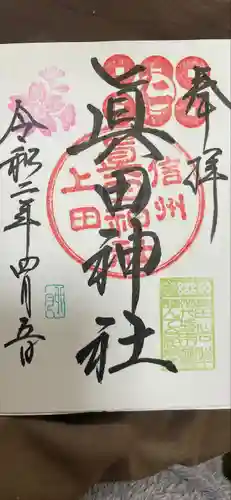 奉拝
眞田神社
信州
上田
眞田神社
令和二年四月五日